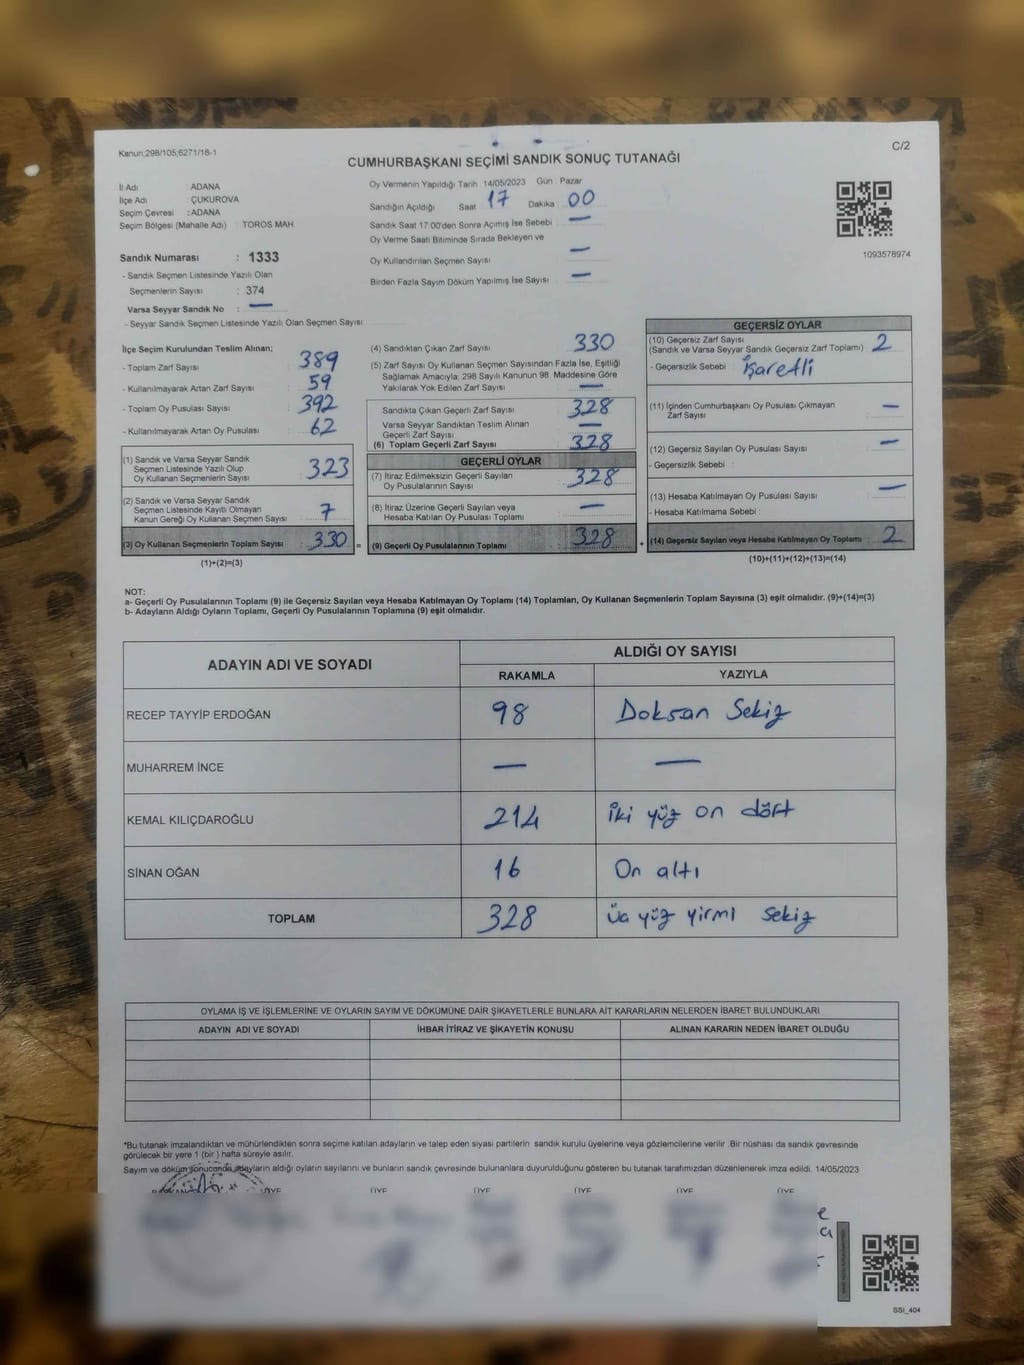 Kanun;298/105;6271/18-1
C/2
CUMHURBAŞKANI SEÇİMİ SANDIK SONUÇ TUTANAĞI
İl Adı : ADANA
İlçe Adı : ÇUKUROVA
Seçim Çevresi : ADANA
Seçim Bölgesi (Mahalle Adı) TOROS MAH
Sandık Numarası : 1333
- Sandık Seçmen Listesinde Yazılı Olan
Seçmenlerin Sayısı : 374
Varsa Seyyar Sandık No : —
- Seyyar Sandık Seçmen Listesinde Yazılı Olan Seçmen Sayısı
Oy Vermenin Yapıldığı Tarih 14/05/2023 Gün : Pazar
Sandığın Açıldığı Saat 17 Dakika 00
Sandık Saat 17:00'den Sonra Açımış İse Sebebi —
Oy Verme Saati Bitiminde Sırada Bekleyen ve
Oy Kullandırılan Seçmen Sayısı —
Birden Fazla Sayım Döküm Yapılmış İse Sayısı —
1093578974
İlçe Seçim Kurulundan Teslim Alınan;
- Toplam Zarf Sayısı : 389
- Kullanılmayarak Artan Zarf Sayısı : 59
- Toplam Oy Pusulası Sayısı : 392
- Kullanılmayarak Artan Oy Pusulası : 62
(1) Sandık ve Varsa Seyyar Sandık
Seçmen Listesinde Yazılı Olup
Oy Kullanan Seçmenlerin Sayısı : 323
(2) Sandık ve Varsa Seyyar Sandık
Seçmen Listesinde Kayıtlı Olmayan
Kanun Gereği Oy Kullanan Seçmen Sayısı : 7
(3) Oy Kullanan Seçmenlerin Toplam Sayısı : 330 =
(1)+(2)=(3)
(4) Sandıktan Çıkan Zarf Sayısı 330
(5) Zarf Sayısı Oy Kullanan Seçmen Sayısından Fazla İse, Eşitliği
Sağlamak Amacıyla; 298 Sayılı Kanunun 98. Maddesine Göre
Yakılarak Yok Edilen Zarf Sayısı —
Sandıkta Çıkan Geçerli Zarf Sayısı 328
Varsa Seyyar Sandıktan Teslim Alınan
Geçerli Zarf Sayısı —
(6) Toplam Geçerli Zarf Sayısı 328
GEÇERLİ OYLAR
(7) İtiraz Edilmeksizin Geçerli Sayılan
Oy Pusulalarının Sayısı 328
(8) İtiraz Üzerine Geçerli Sayılan veya
Hesaba Katılan Oy Pusulası Toplamı —
(9) Geçerli Oy Pusulalarının Toplamı 328 +
GEÇERSİZ OYLAR
(10) Geçersiz Zarf Sayısı
(Sandık ve Varsa Seyyar Sandık Geçersiz Zarf Toplamı) 2
- Geçersizlik Sebebi : işaretli
(11) İçinden Cumhurbaşkanı Oy Pusulası Çıkmayan
Zarf Sayısı —
(12) Geçersiz Sayılan Oy Pusulası Sayısı —
- Geçersizlik Sebebi :
(13) Hesaba Katılmayan Oy Pusulası Sayısı —
- Hesaba Katılmama Sebebi :
(14) Geçersiz Sayılan veya Hesaba Katılmayan Oy Toplamı : 2
(10)+(11)+(12)+(13)=(14)
NOT:
a- Geçerli Oy Pusulalarının Toplamı (9) ile Geçersiz Sayılan veya Hesaba Katılmayan Oy Toplamı (14) Toplamları, Oy Kullanan Seçmenlerin Toplam Sayısına (3) eşit olmalıdır. (9)+(14)=(3)
b- Adayların Aldığı Oyların Toplamı, Geçerli Oy Pusulalarının Toplamına (9) eşit olmalıdır.
ADAYIN ADI VE SOYADI
ALDIĞI OY SAYISI
RAKAMLA YAZIYLA
RECEP TAYYİP ERDOĞAN 98 Doksan Sekiz
MUHARREM İNCE — —
KEMAL KILIÇDAROĞLU 214 iki yüz on dört
SİNAN OĞAN 16 On altı
TOPLAM 328 üç yüz yirmi sekiz
OYLAMA İŞ VE İŞLEMLERİNE VE OYLARIN SAYIM VE DÖKÜMÜNE DAİR ŞİKAYETLERLE BUNLARA AİT KARARLARIN NELERDEN İBARET BULUNDUKLARI
ADAYIN ADI VE SOYADI İHBAR İTİRAZ VE ŞİKAYETİN KONUSU ALINAN KARARIN NEDEN İBARET OLDUĞU
*Bu tutanak imzalandıktan ve mühürlendikten sonra seçime katılan adayların ve talep eden siyasi partilerin sandık kurulu üyelerine veya gözlemcilerine verilir. Bir nüshası da sandık çevresinde
görülecek bir yere 1 (bir) hafta süreyle asılır.
Sayım ve döküm sonucunda adayların aldığı oyların sayılarını ve bunların sandık çevresinde bulunanlara duyurulduğunu gösteren bu tutanak tarafımızdan düzenlenerek imza edildi. 14/05/2023
ÜYE ÜYE ÜYE ÜYE ÜYE ÜYE
SSI_404